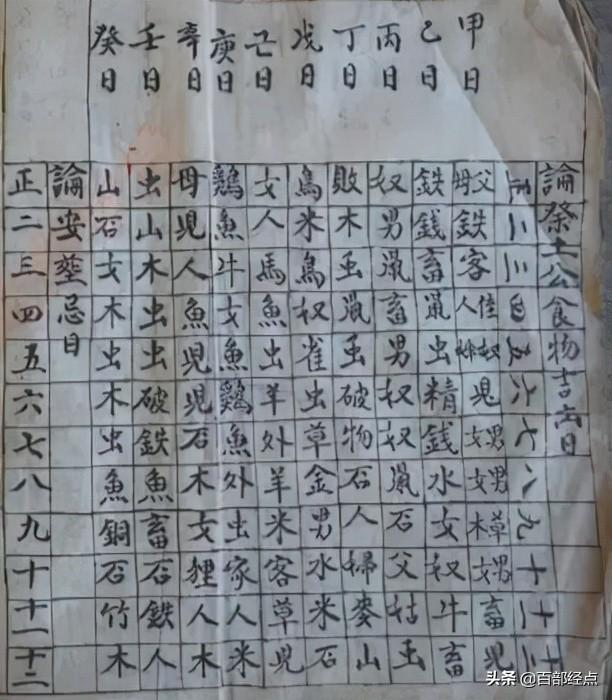 論祭土公食物吉凶日
正二三四五六七八九十十一十二
甲日父母鉄客佳人児男女男女男女畜児
乙日鉄錢畜鼠虫精錢水女奴牛畜
丙日奴男鼠畜男奴奴鼠石父牯玉
丁日敗木玉鼠玉破物石人婦麥山
戊日鳥米鳥奴雀虫草金男水米石
己日女人馬魚虫羊外羊米客草児
庚日鶏魚牛女魚鶏魚外虫家人米
辛日母児人魚児児石木女狸人木
壬日虫山木虫虫破鉄魚畜石鉄人
癸日山石女木虫木虫魚銅石竹木
論安葬忌日
正二三四五六七八九十十一十二
头条 @百部经点